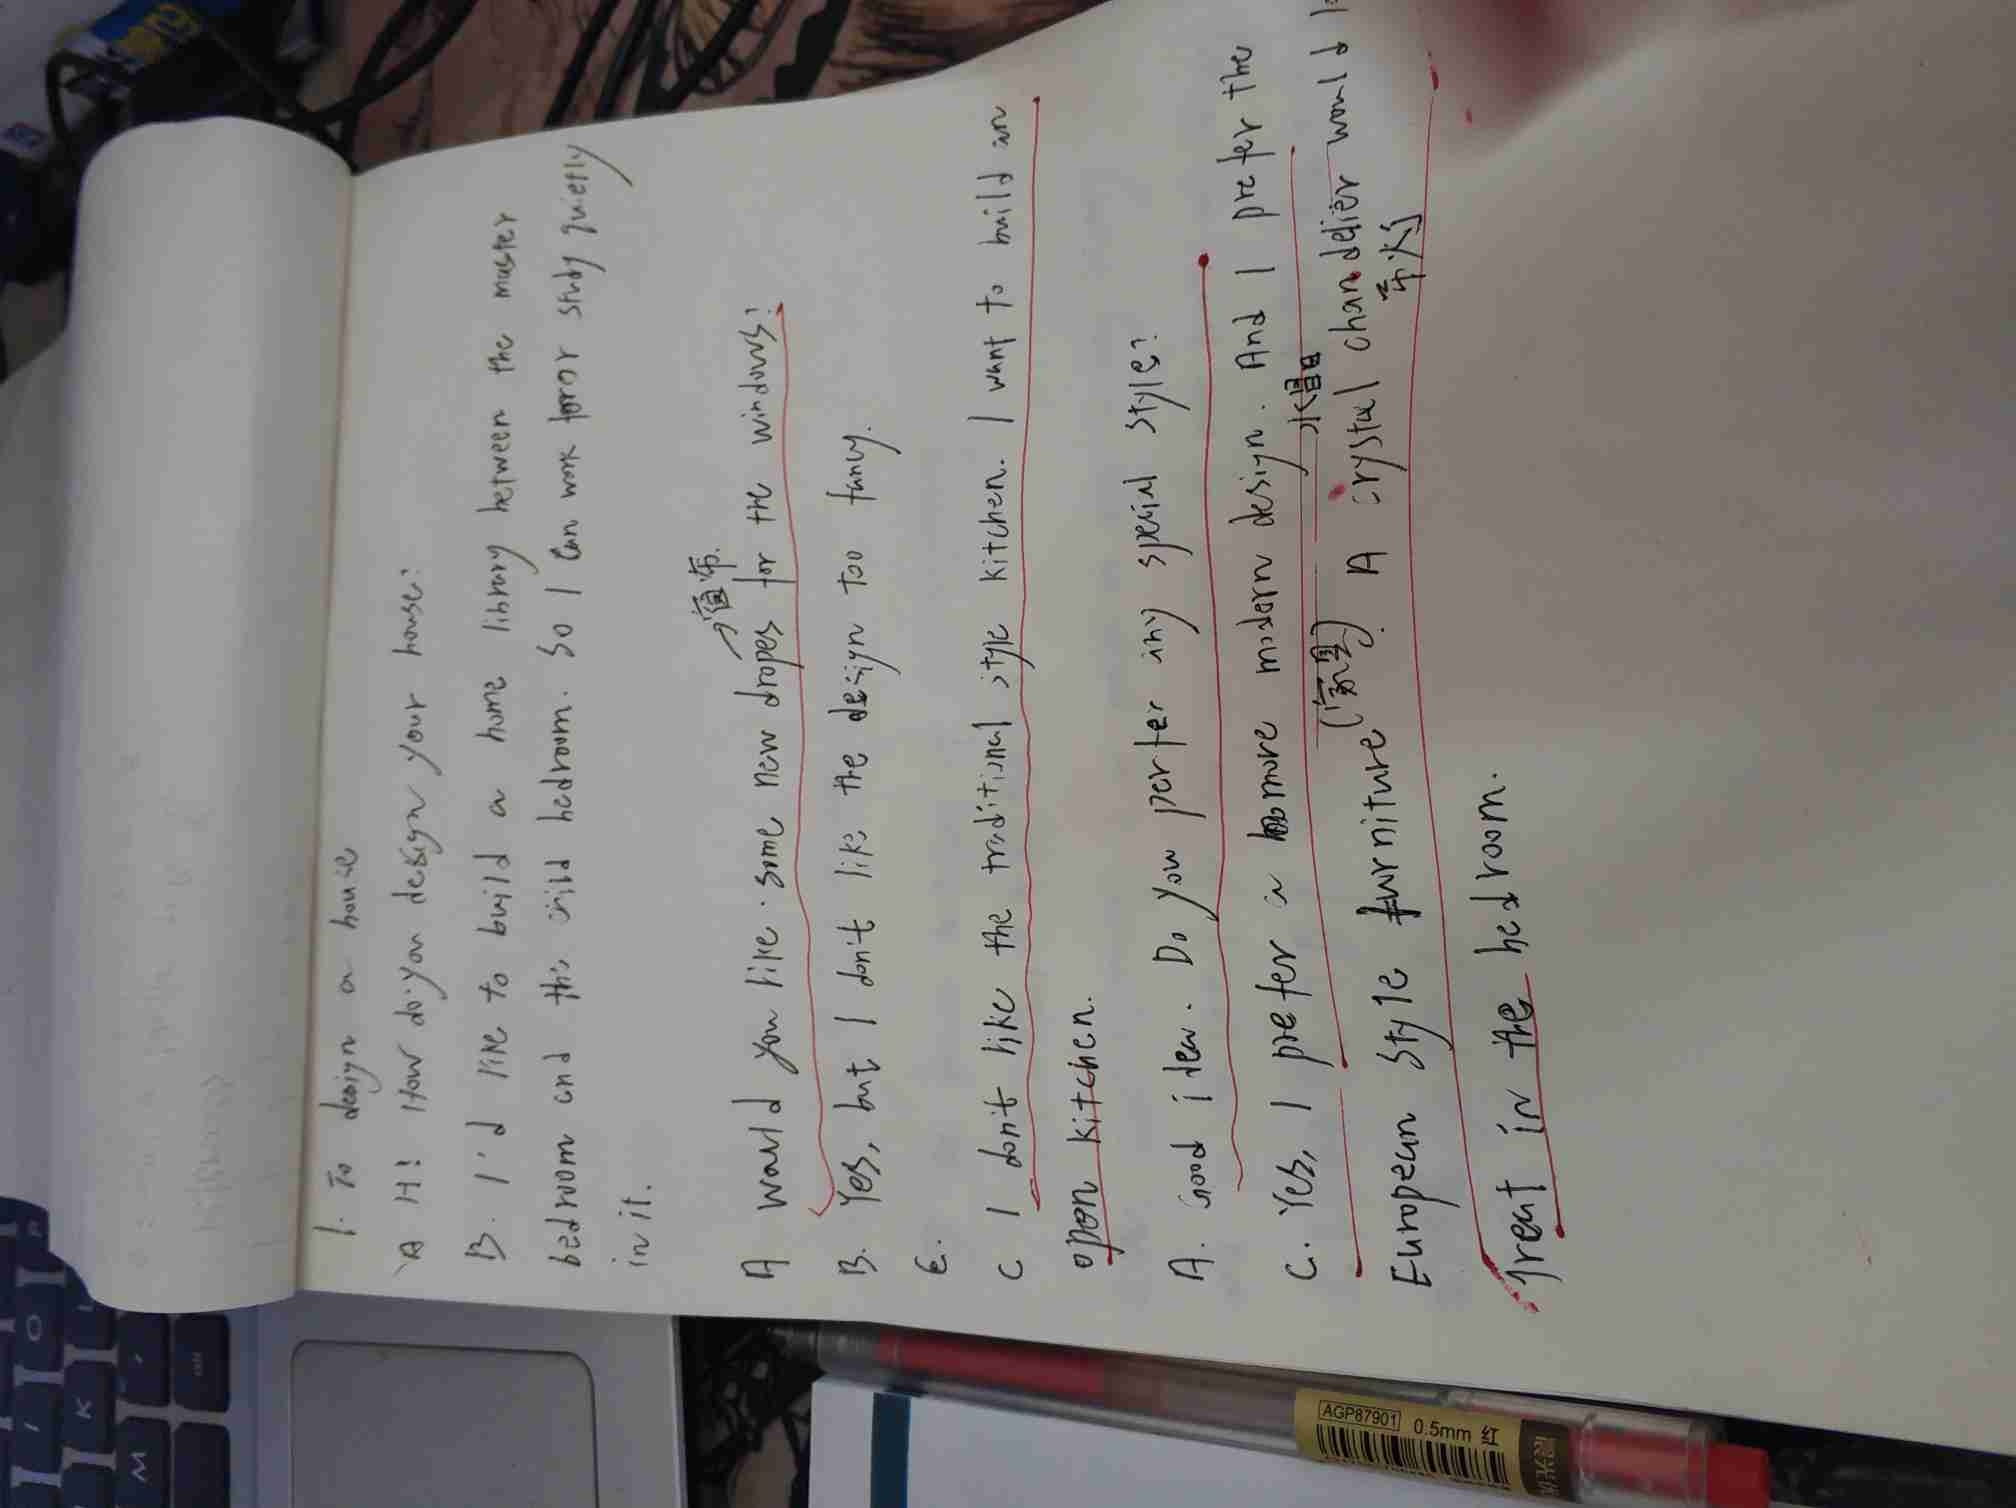 1. To design a house
A Hi How do you design your house?
B. I'd like to build a home library between the master
bedroom and the child bedroom. So I can work for or study quietly
in it.
窗布.
A Would you like some new dropes for the windows?
B. Yes, but I don't like the design too fancy.
C.
C I don't like the traditional style kitchen. I want to build an
open kitchen.
A. Good idea. Do you perfer any special style?
C. Yes, I prefer a more modern design. And I prefer the
水晶
European style furniture (家具). A crystal chandelier would
吊灯
great in the bedroom.
AGP87901 0.5mm 红
O
K
M
P
L